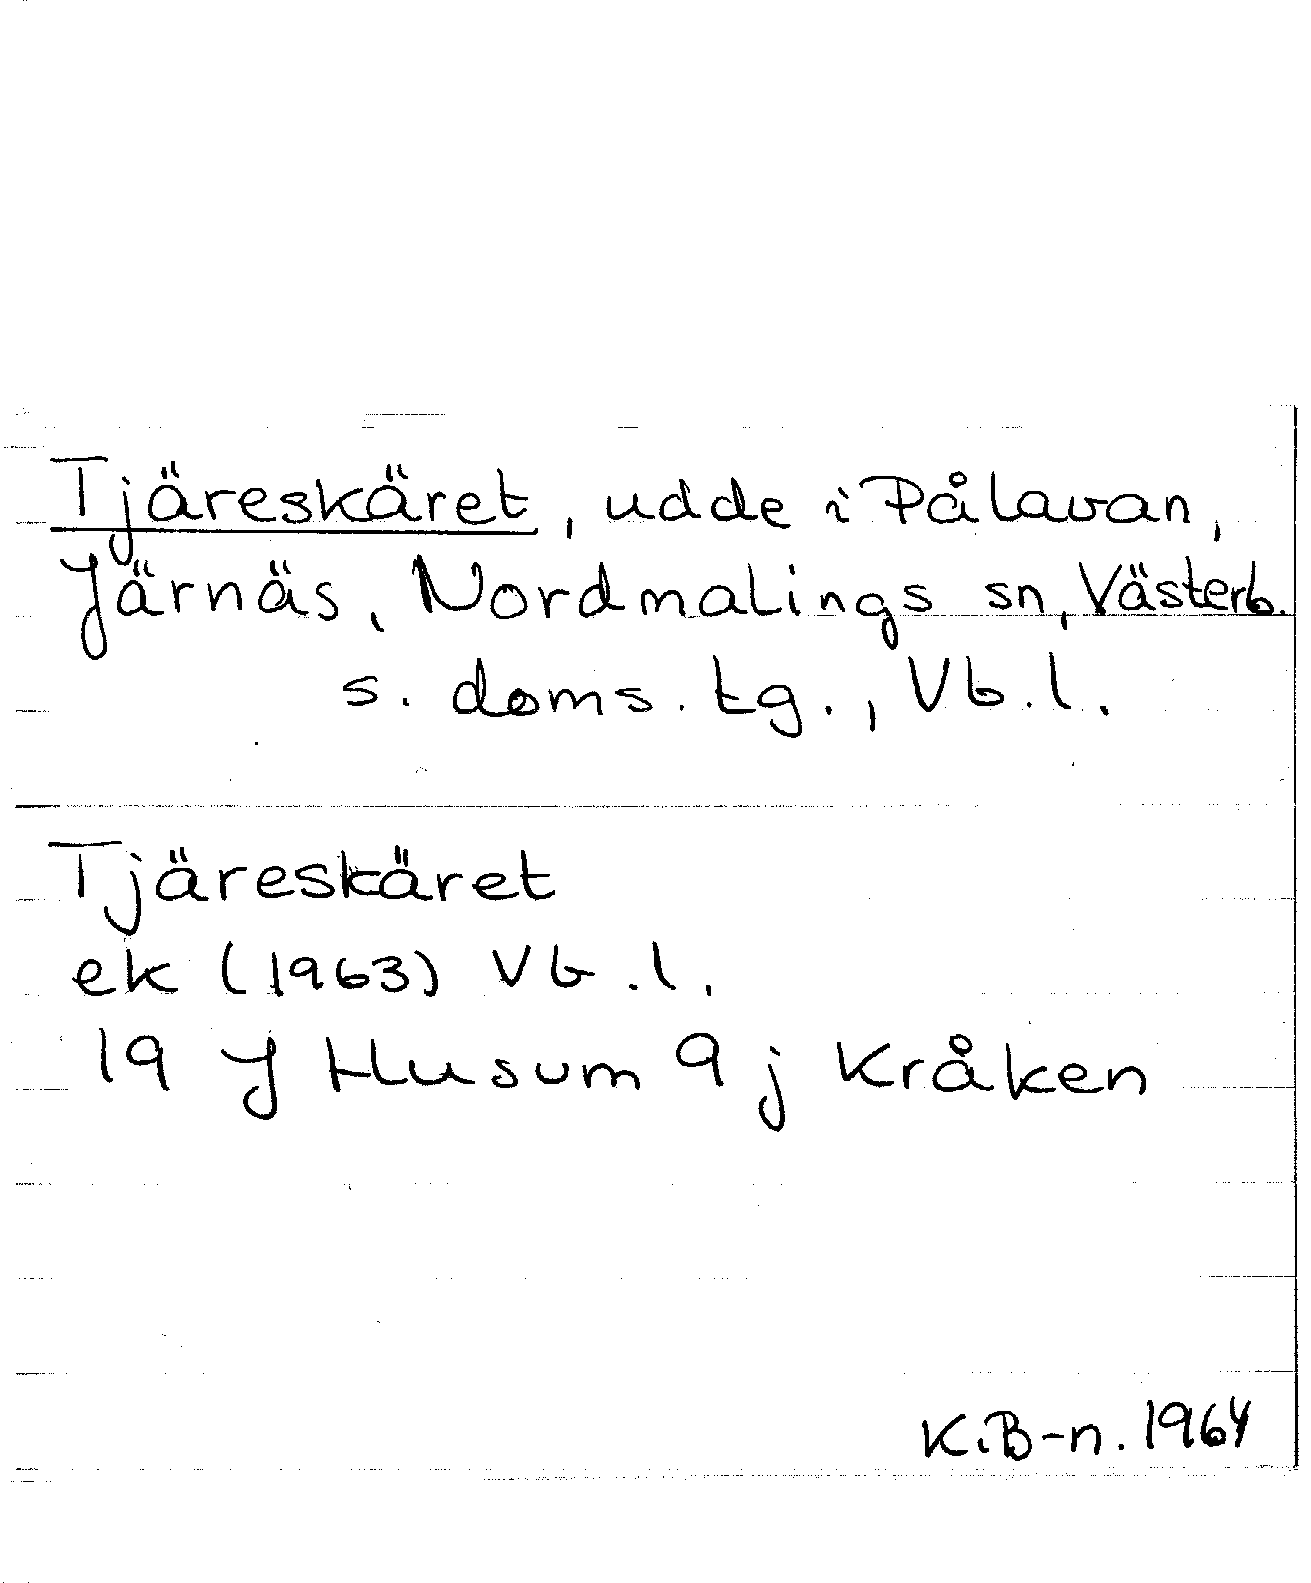 Tjäreskäret, udde i Pålavan,
Järnäs, Nordmalings sn, Västerb.
s. doms. tg., Vb. l.
Tjäreskäret
ek (1963) Vb. l.
19 J Husum 9 j Kråken
K.B-n. 1964